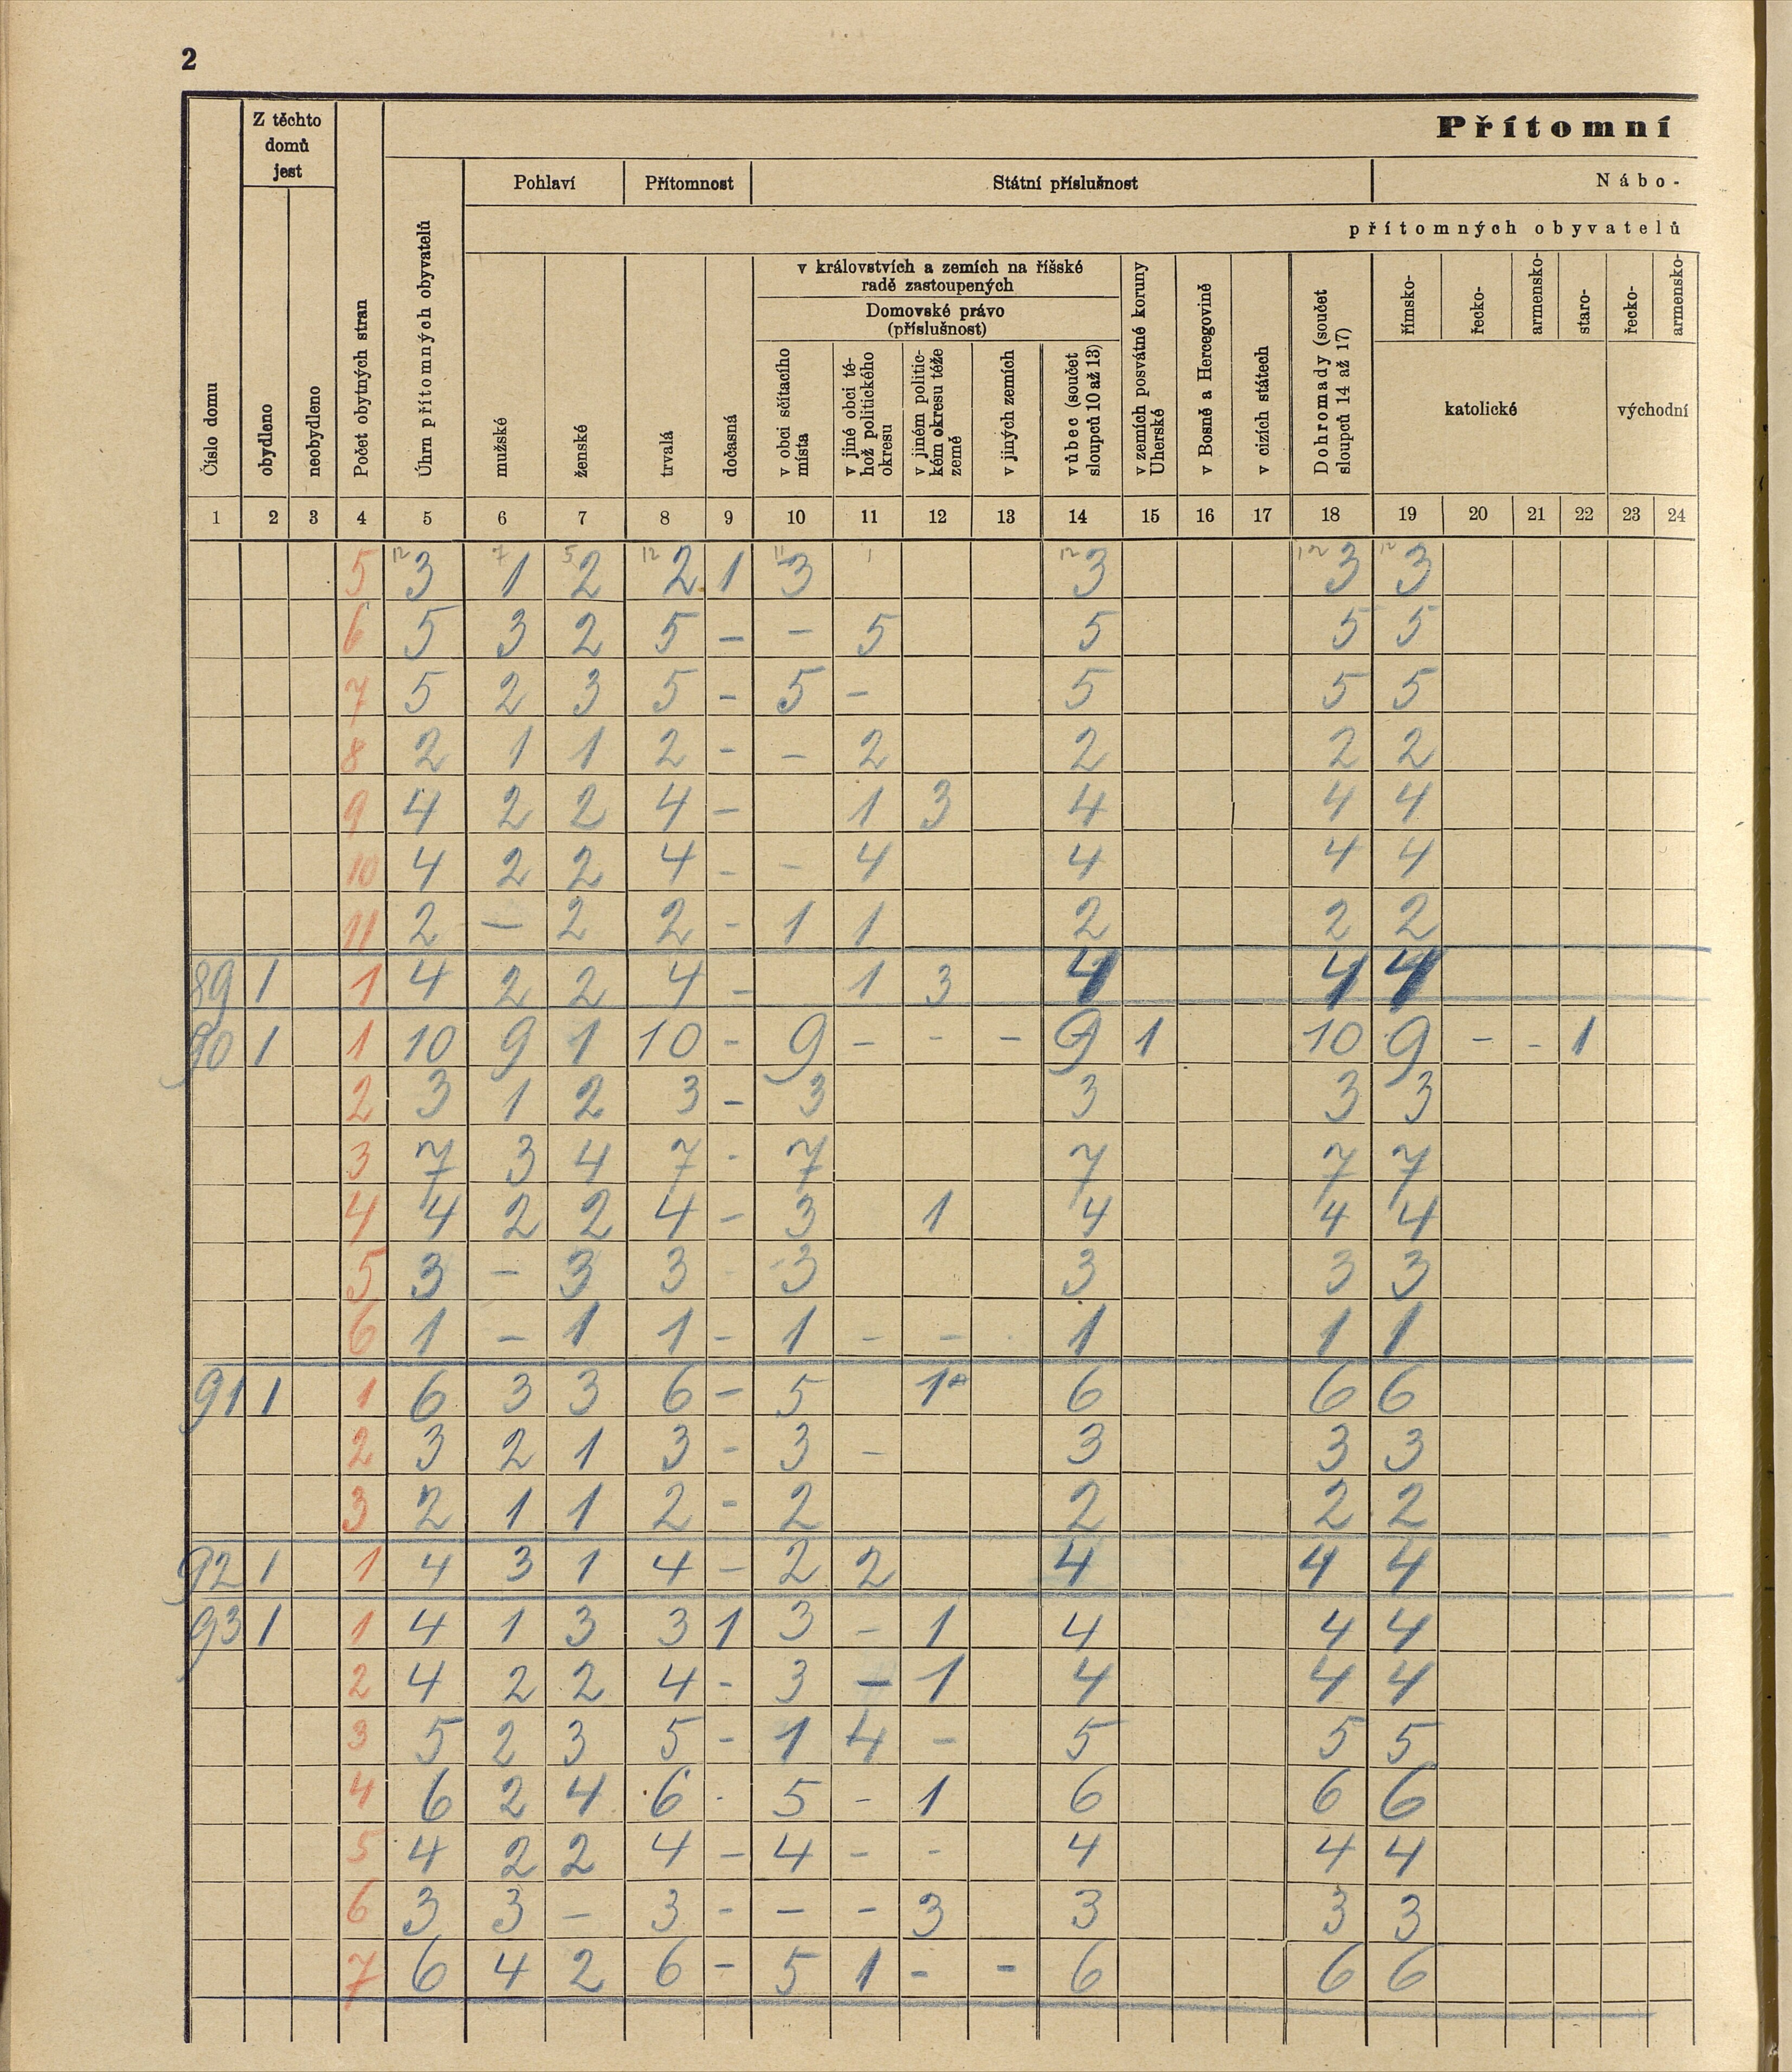 2
Přítomní
Z těchto domů jest
Pohlaví
Přítomnost
Státní příslušnost
Nábo-
přítomných obyvatelů
v královstvích a zemích na říšské radě zastoupených
Domovské právo (příslušnost)
Číslo domu
obydleno
neobydleno
Počet obytných stran
Úhrn přítomných obyvatelů
mužské
ženské
trvalá
dočasná
v obci sčítacího místa
v jiné obci téhož politického okresu
v jiném politickém okresu téže země
v jiných zemích
vůbec (součet sloupců 10 až 13)
v zemích posvátné koruny Uherské
v Bosně a Hercegovině
v cizích státech
Dohromady (součet sloupců 14 až 17)
římsko-
řecko-
armensko-
staro-
řecko-
armensko-
katolické
východní
1 2 3 4 5 6 7 8 9 10 11 12 13 14 15 16 17 18 19 20 21 22 23 24
12 7 5 12 11 1 12 12 12
5 3 1 2 2 1 3 3 3 3
6 5 3 2 5 - - 5 5 5 5
7 5 2 3 5 - 5 - 5 5 5
8 2 1 1 2 - - 2 2 2 2
9 4 2 2 4 - 1 3 4 4 4
10 4 2 2 4 - - 4 4 4 4
11 2 - 2 2 - 1 1 2 2 2
89 1 1 4 2 2 4 - 1 3 4 4 4
90 1 1 10 9 1 10 - 9 - - - 9 1 10 9 - - 1
2 3 1 2 3 - 3 3 3 3
3 7 3 4 7 - 7 7 7 7
4 4 2 2 4 - 3 1 4 4 4
5 3 - 3 3 - 3 3 3 3
6 1 - 1 1 - 1 - - 1 1 1
91 1 1 6 3 3 6 - 5 1 6 6 6
2 3 2 1 3 - 3 - 3 3 3
3 2 1 1 2 - 2 2 2 2
92 1 1 4 3 1 4 - 2 2 4 4 4
93 1 1 4 1 3 3 1 3 - 1 4 4 4
2 4 2 2 4 - 3 - 1 4 4 4
3 5 2 3 5 - 1 4 - 5 5 5
4 6 2 4 6 - 5 - 1 6 6 6
5 4 2 2 4 - 4 - - 4 4 4
6 3 3 - 3 - - - 3 3 3 3
7 6 4 2 6 - 5 1 - - 6 6 6